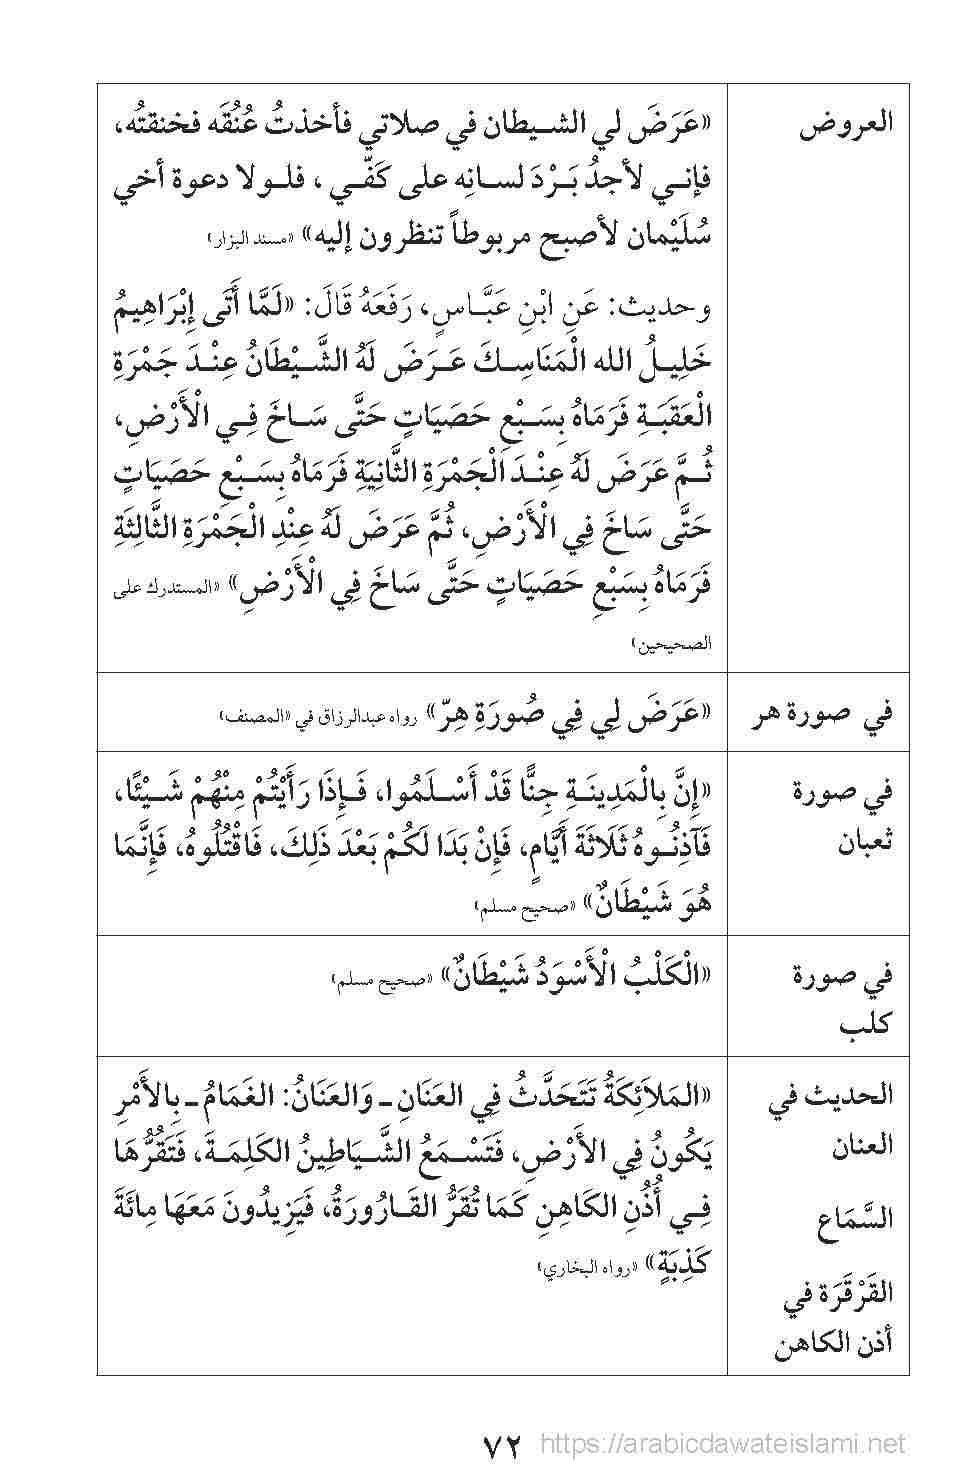 العروض
«عَرَضَ لي الشيطان في صلاتي فأخذتُ عُنُقَه فخنقتُه،
فإني لأجدُ بَرْدَ لسانِه على كَفّي ، فلولا دعوة أخي
سُلَيْمان لأصبح مربوطاً تنظرون إليه» «مسند البزار»
وحديث: عَنِ ابْنِ عَبَّاسٍ، رَفَعَهُ قَالَ: «لَمَّا أَتَى إِبْرَاهِيمُ
خَلِيلُ الله الْمَنَاسِكَ عَرَضَ لَهُ الشَّيْطَانُ عِنْدَ جَمْرَةِ
الْعَقَبَةِ فَرَمَاهُ بِسَبْعِ حَصَيَاتٍ حَتَّى سَاخَ فِي الْأَرْضِ،
ثُمَّ عَرَضَ لَهُ عِنْدَ الْجَمْرَةِ الثَّانِيَةِ فَرَمَاهُ بِسَبْعِ حَصَيَاتٍ
حَتَّى سَاخَ فِي الْأَرْضِ، ثُمَّ عَرَضَ لَهُ عِنْدِ الْجَمْرَةِ الثَّالِثَةِ
فَرَمَاهُ بِسَبْعِ حَصَيَاتٍ حَتَّى سَاخَ فِي الْأَرْضِ» «المستدرك على
الصحيحين»
في صورة هر
«عَرَضَ لِي فِي صُورَةِ هِرّ» رواه عبدالرزاق في «المصنف»
في صورة
ثعبان
«إِنَّ بِالْمَدِينَةِ جِنًّا قَدْ أَسْلَمُوا، فَإِذَا رَأَيْتُمْ مِنْهُمْ شَيْئًا،
فَآذِنُوهُ ثَلَاثَةَ أَيَّامٍ، فَإِنْ بَدَا لَكُمْ بَعْدَ ذَلِكَ، فَاقْتُلُوهُ، فَإِنَّمَا
هُوَ شَيْطَانٌ» «صحيح مسلم»
في صورة
كلب
«الْكَلْبُ الْأَسْوَدُ شَيْطَانٌ» «صحيح مسلم»
الحديث في
العنان
السَّمَاع
القَرْقَرَة في
أذن الكاهن
«المَلاَئِكَةُ تَتَحَدَّثُ فِي العَنَانِ ـ وَالعَنَانُ: الغَمَامُ ـ بِالأَمْرِ
يَكُونُ فِي الأَرْضِ، فَتَسْمَعُ الشَّيَاطِينُ الكَلِمَةَ، فَتَقُرُّهَا
فِي أُذُنِ الكَاهِنِ كَمَا تُقَرُّ القَارُورَةُ، فَيَزِيدُونَ مَعَهَا مِائَةَ
كَذِبَةٍ» «رواه البخاري»
٧٢
https://arabicdawateislami.net